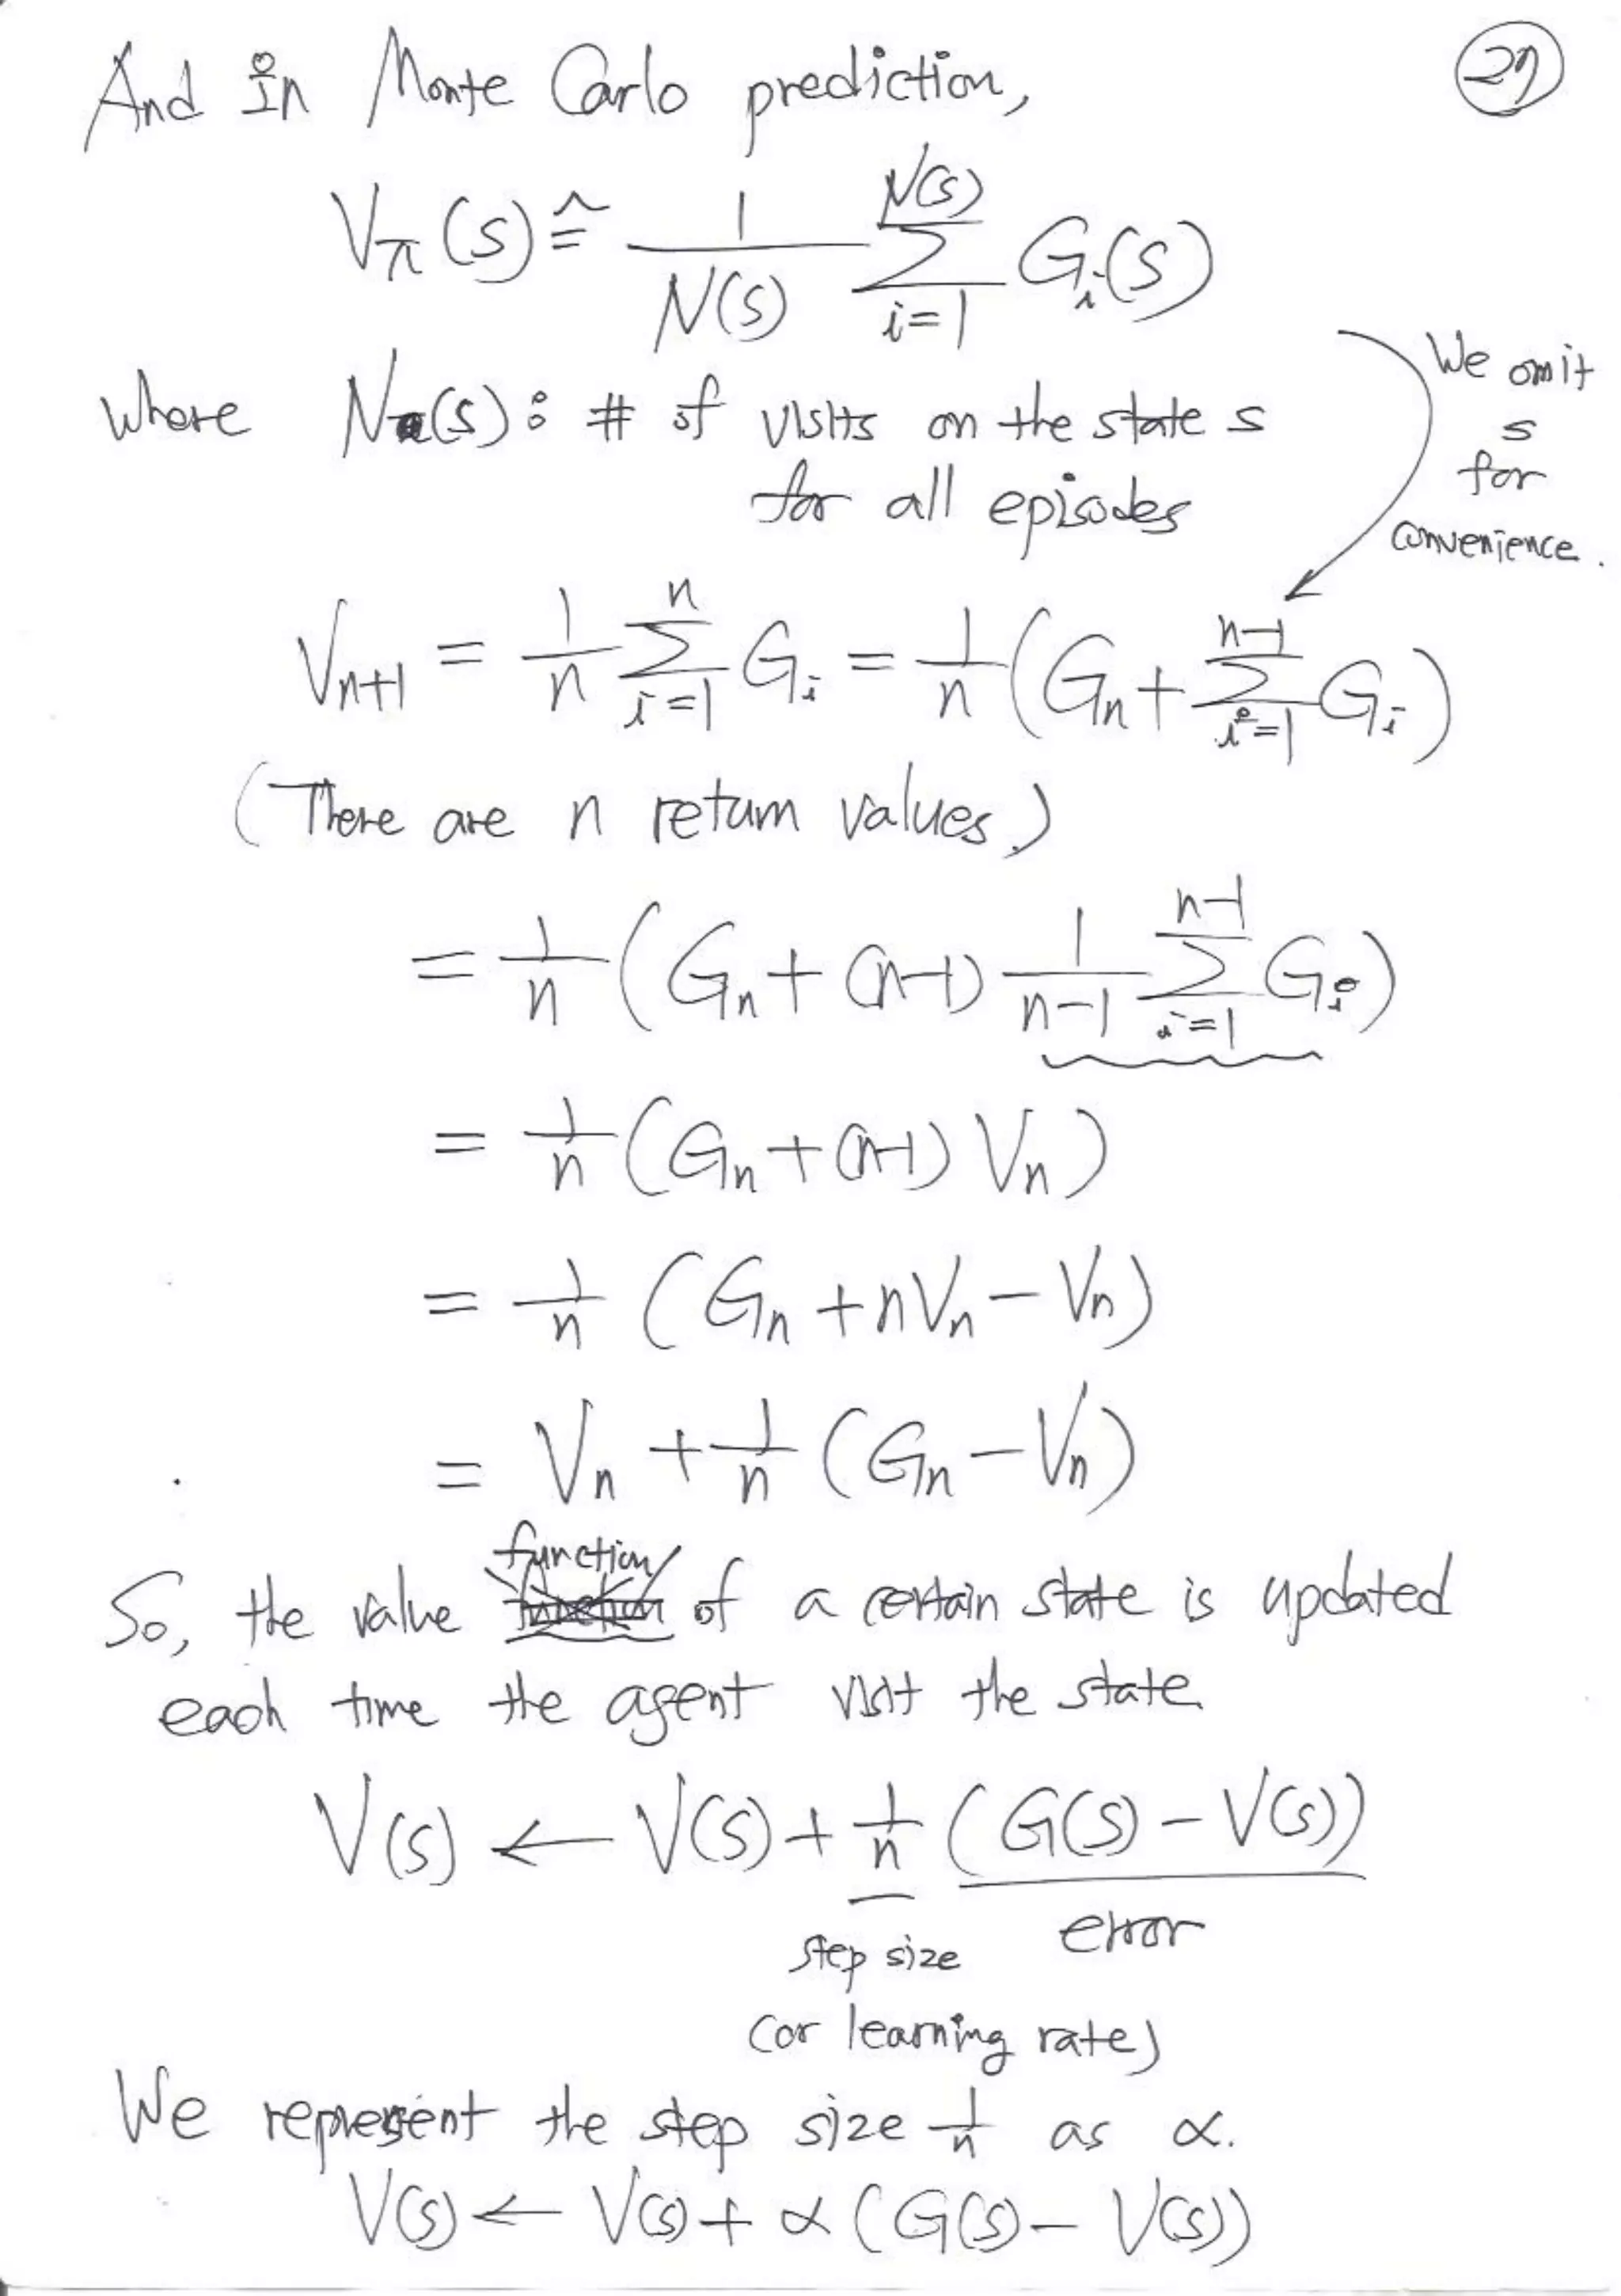 And in Monte Carlo prediction,
27
V_π(s) ≙ 1/N(s) Σ_{i=1}^{N(s)} G_i(s)
where N(s): # of visits on the state s
for all episodes
We omit
s
for
convenience.
V_{n+1} = 1/n Σ_{i=1}^{n} G_i = 1/n (G_n + Σ_{i=1}^{n-1} G_i)
(There are n return values.)
= 1/n (G_n + (n-1) 1/(n-1) Σ_{i=1}^{n-1} G_i)
= 1/n (G_n + (n-1) V_n)
= 1/n (G_n + nV_n - V_n)
= V_n + 1/n (G_n - V_n)
So, the value function of a certain state is updated
each time the agent visit the state
V(s) ← V(s) + 1/n (G(s) - V(s))
step size error
(or learning rate)
We represent the step size 1/n as α.
V(s) ← V(s) + α (G(s) - V(s))